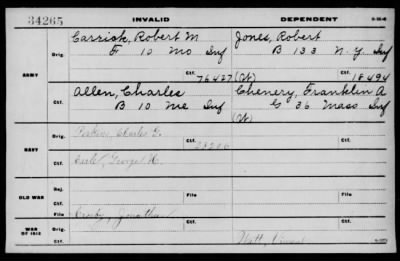 34265
INVALID
DEPENDENT
ARMY
Orig.
Carrick, Robert M
F 10 Mo Inf
Ctf.
76427
Jones, Robert
B 133 N.Y. Inf
(W)
Ctf.
18494
Ctf.
Allen, Charles
B 10 Me Inf
Chenery, Franklin A
G 36 Mass Inf
(W)
NAVY
Orig.
Perkins, Charles G.
Ctf.
Ctf.
Ctf.
George H.
OLD WAR
Rej.
File
File
Ctf.
WAR OF 1812
Orig.
Crosby, Jonathan
Ctf.
Ctf.
Ctf.